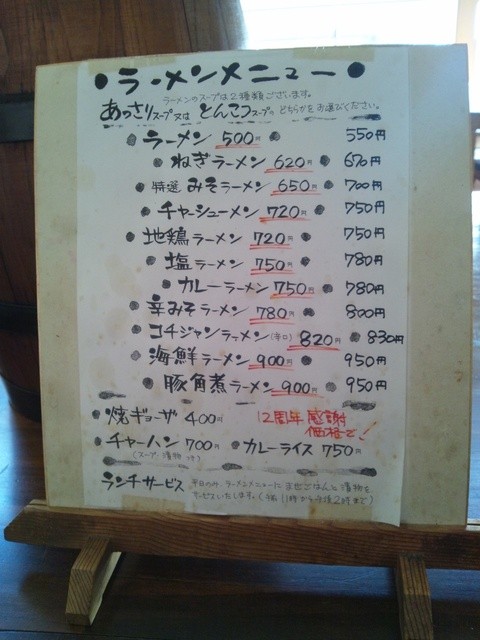 ●ラーメンメニュー●
ラーメンのスープは2種類ございます。
あっさりスープ又はとんこつスープのどちらかをお選びください。
●ラーメン 500円 ● 550円
●ねぎラーメン 620円 ● 670円
●特選みそラーメン 650円 ● 700円
●チャーシューメン 720円 ● 750円
●地鶏ラーメン 720円 ● 750円
●塩ラーメン 750円 ● 780円
●カレーラーメン 750円 ● 780円
●辛みそラーメン 780円 ● 800円
●コチジャンラーメン(辛口) 820円 ● 830円
●海鮮ラーメン 900円 ● 950円
●豚角煮ラーメン 900円 ● 950円
●焼ギョーザ 400円
12周年感謝
価格で!
●チャーハン 700円 ●カレーライス 750円
(スープ・漬物付)
ランチサービス 平日のみ、ラーメンメニューに ごはんと漬物を
サービスいたします。(午前11時から午後2時まで)